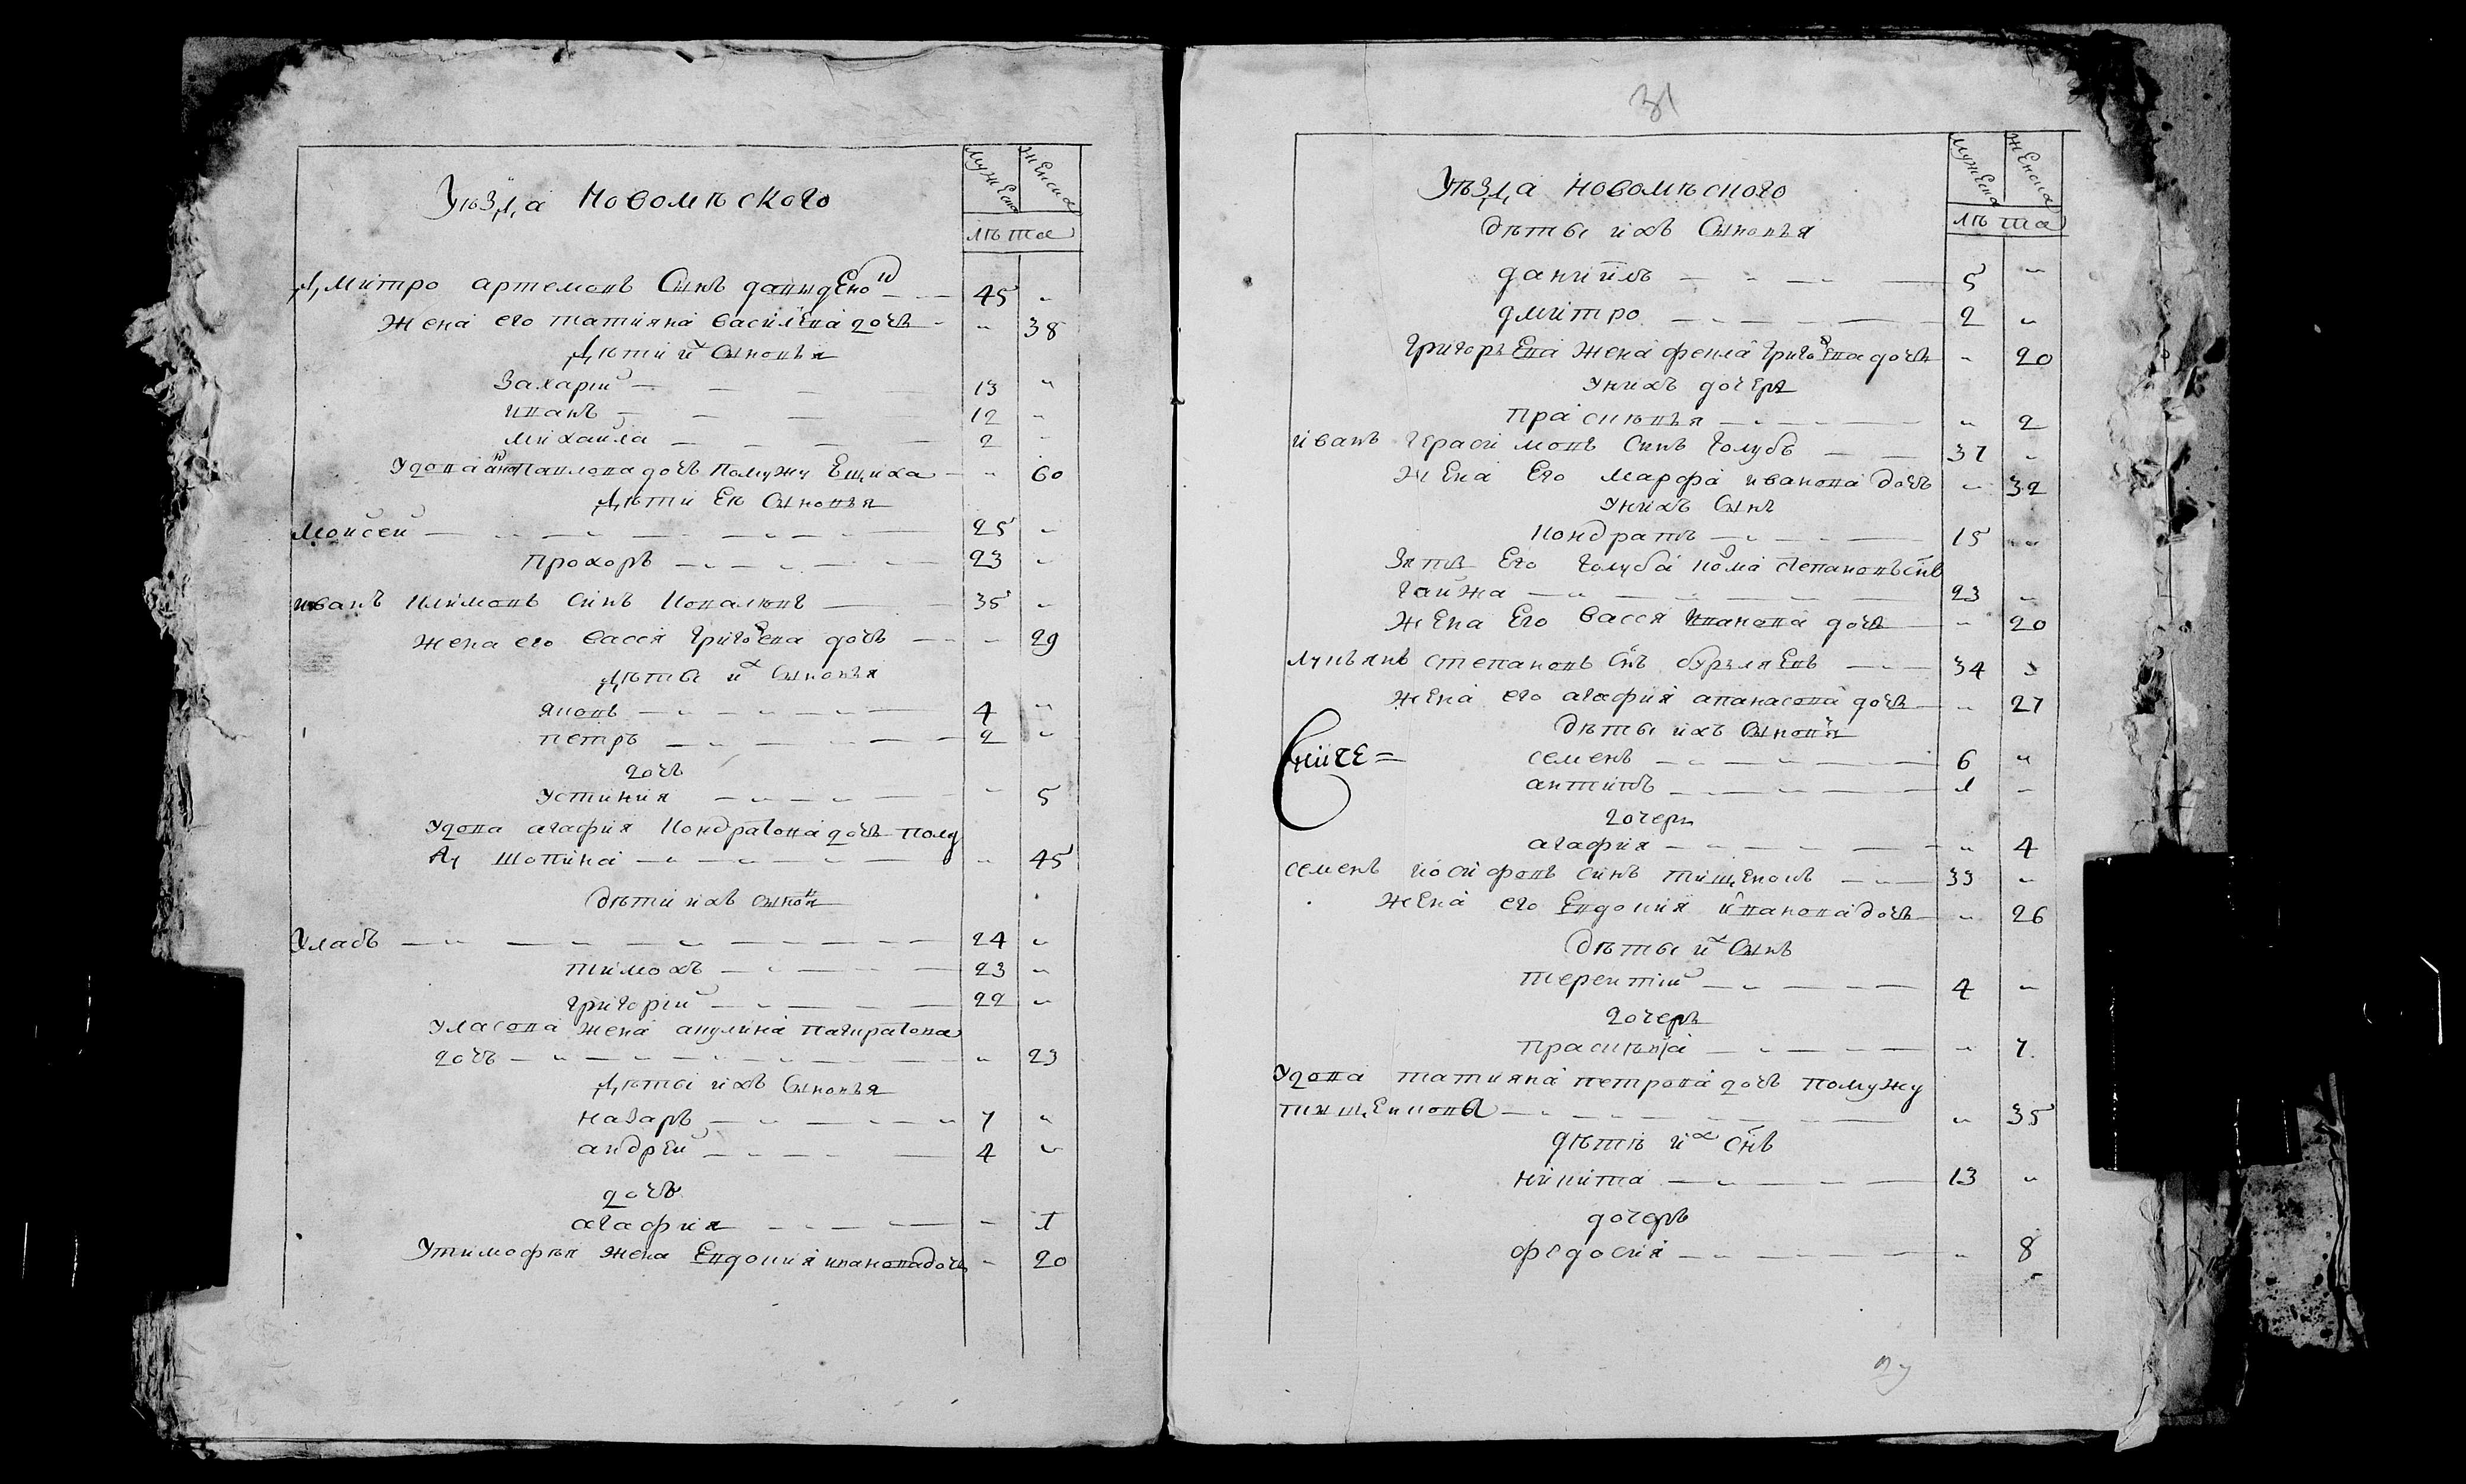 мужеска
женска
Уѣзда Новомѣского
лѣта
Дмитро артемовъ Синъ давиденко
45 „
Жена его татияна василева дочь – „ 38
Дѣти их Синовья
Захарий – 13 „
иванъ – 12 „
михайла – 2 „
Удова анна павлова дочъ помужу Ещиха – „ 60
Дѣти Еѣ Синовья
Мойсей – 25 „
прохоръ – 23 „
иванъ Климовъ синъ Ковалювъ – 35 „
жена его васся григорева дочь – „ 29
Дѣты их Синовья
яковъ – 4 „
петръ – 2 „
дочь
устиния – „ 5
Удова агафия Кондратова дочь пому
жу шотина – „ 45
дѣти ихъ синовя
Уласъ – 24 „
тимохъ – 23 „
григорий – 22 „
Уласова жена акулина
дочъ – „ 23
Дѣты ихъ Синовья
назаръ – 7 „
андрей – 4 „
дочь
агафия – „ 1
Утимофѣя жена Евдокия иванова дочь – „ 20
31
мужеска
женска
Уѣзда новомѣского
лѣта
дѣты ихъ Синовья
данийлъ – 5 „
дмитро – 2 „
григорьева жена фекла григорева дочь – „ 20
Унихъ дочеръ
праскювья – „ 2
иванъ герасимовъ синъ голубъ – 37 „
жена Его марфа иванова дочъ – „ 32
Унихъ Синъ
кондратъ – 15 „
Зятъ Его голуба кома степановъ снъ
гайжа – 23 „
жена Его васся иванова дочь – „ 20
лукьянъ степановъ снъ – 34 „
жена его агафия апанасова дочь – „ 27
дѣты ихъ Синовя
семенъ – 6 „
антипъ – 1 „
дочеръ
агафия – „ 4
семенъ иосифовъ синъ тищенокъ – 33 „
жена его Евдокия иванова дочь – „ 26
дѣты их Синъ
терентий – 4 „
дочеръ
праскювя – „ 7
Удова татияна петрова дочъ помужу
тищенкова – „ 35
дѣтѣ их снъ
никита – 13 „
дочеръ
федосия – „ 8